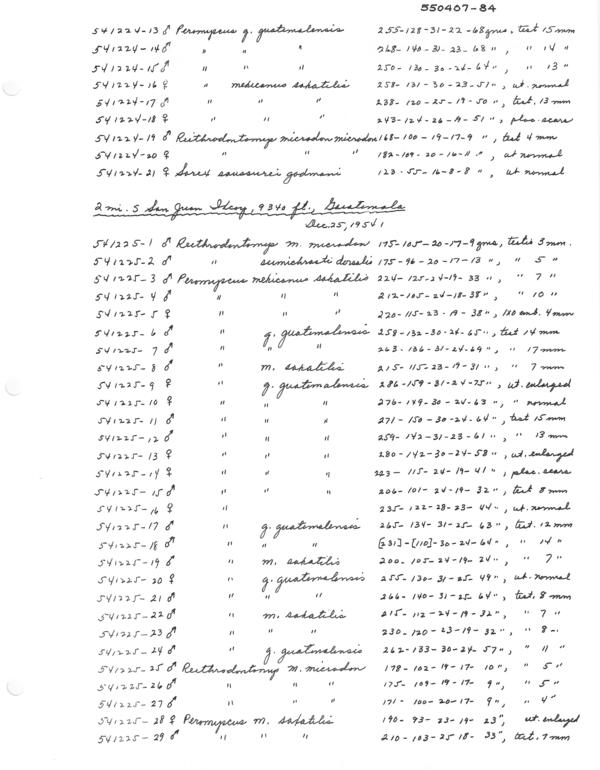 550407-84
541224-13 ♂ Peromyscus g. guatemalensis 255-128-31-22-68gms, test 15 mm
541224-14 ♂ " " " 268-140-31-23-68 ", " 14 "
541224-15 ♂ " " " 250-130-30-24-64 ", " 13 "
541224-16 ♀ " mexicanus saxatilis 258-131-30-23-51 ", ut. normal
541224-17 ♂ " " " 238-120-25-19-50 ", test. 13 mm
541224-18 ♀ " " " 243-124-26-19-51 ", plac. scars
541224-19 ♂ Reithrodontomys microdon microdon 168-100-19-17-9 ", test 4 mm
541224-20 ♀ " " " 182-109-20-16-11 ", ut normal
541224-21 ♀ Sorex saussurei godmani 123-55-16-8-8 ", ut normal
2 mi. S San Juan Ixcoy, 9340 ft., Guatemala
Dec. 25, 1954
541225-1 ♂ Reithrodontomys m. microdon 175-105-20-17-9gms, testis 3mm.
541225-2 ♂ " sumichrasti dorsalis 175-96-20-17-13 ", " 5 "
541225-3 ♂ Peromyscus mexicanus saxatilis 224-125-24-19-33 ", " 7 "
541225-4 ♂ " " " 212-105-24-18-38 ", " 10 "
541225-5 ♀ " " " 220-115-23-19-38 ", 1R0 emb. 4mm
541225-6 ♂ " g. guatemalensis 258-132-30-24-65 ", test 14 mm
541225-7 ♂ " " " 263-136-31-24-69 ", " 17mm
541225-8 ♂ " m. saxatilis 215-115-23-19-31 ", " 7 mm
541225-9 ♀ " g. guatemalensis 286-159-31-24-75 ", ut. enlarged
541225-10 ♀ " " " 276-149-30-24-63 ", " normal
541225-11 ♂ " " " 271-150-30-24-64 ", test 15mm
541225-12 ♂ " " " 259-142-31-23-61 ", " 13 mm
541225-13 ♀ " " " 280-142-30-24-58 ", ut. enlarged
541225-14 ♀ " " " 223-115-24-19-41 ", plac. scars
541225-15 ♂ " " " 206-101-24-19-32 ", test 8 mm
541225-16 ♀ " 235-122-28-23-44 ", ut. normal
541225-17 ♂ " g. guatemalensis 265-134-31-25-63 ", test. 12 mm
541225-18 ♂ " " " [231]-[110]-30-24-64 ", " 14 "
541225-19 ♂ " m. saxatilis 200-105-24-19-24 ", " 7 "
541225-20 ♀ " g. guatemalensis 255-130-31-25-49 ", ut. normal
541225-21 ♂ " " " 266-140-31-25-64 ", test. 8 mm
541225-22 ♂ " m. saxatilis 215-112-24-19-32 ", " 7 "
541225-23 ♂ " " " 230-120-23-19-32 ", " 8 -
541225-24 ♂ " g. guatemalensis 262-133-30-24-57 ", " 11 "
541225-25 ♂ Reithrodontomys m. microdon 178-102-19-17-10 ", " 5 "
541225-26 ♂ " " " 175-109-19-17-9 ", " 5 "
541225-27 ♂ " " " 171-100-20-17-9 ", " 4 "
541225-28 ♀ Peromyscus m. saxatilis 190-93-23-19-23 ", ut. enlarged
541225-29 ♂ " " " 210-103-25-18-33 ", test. 7 mm